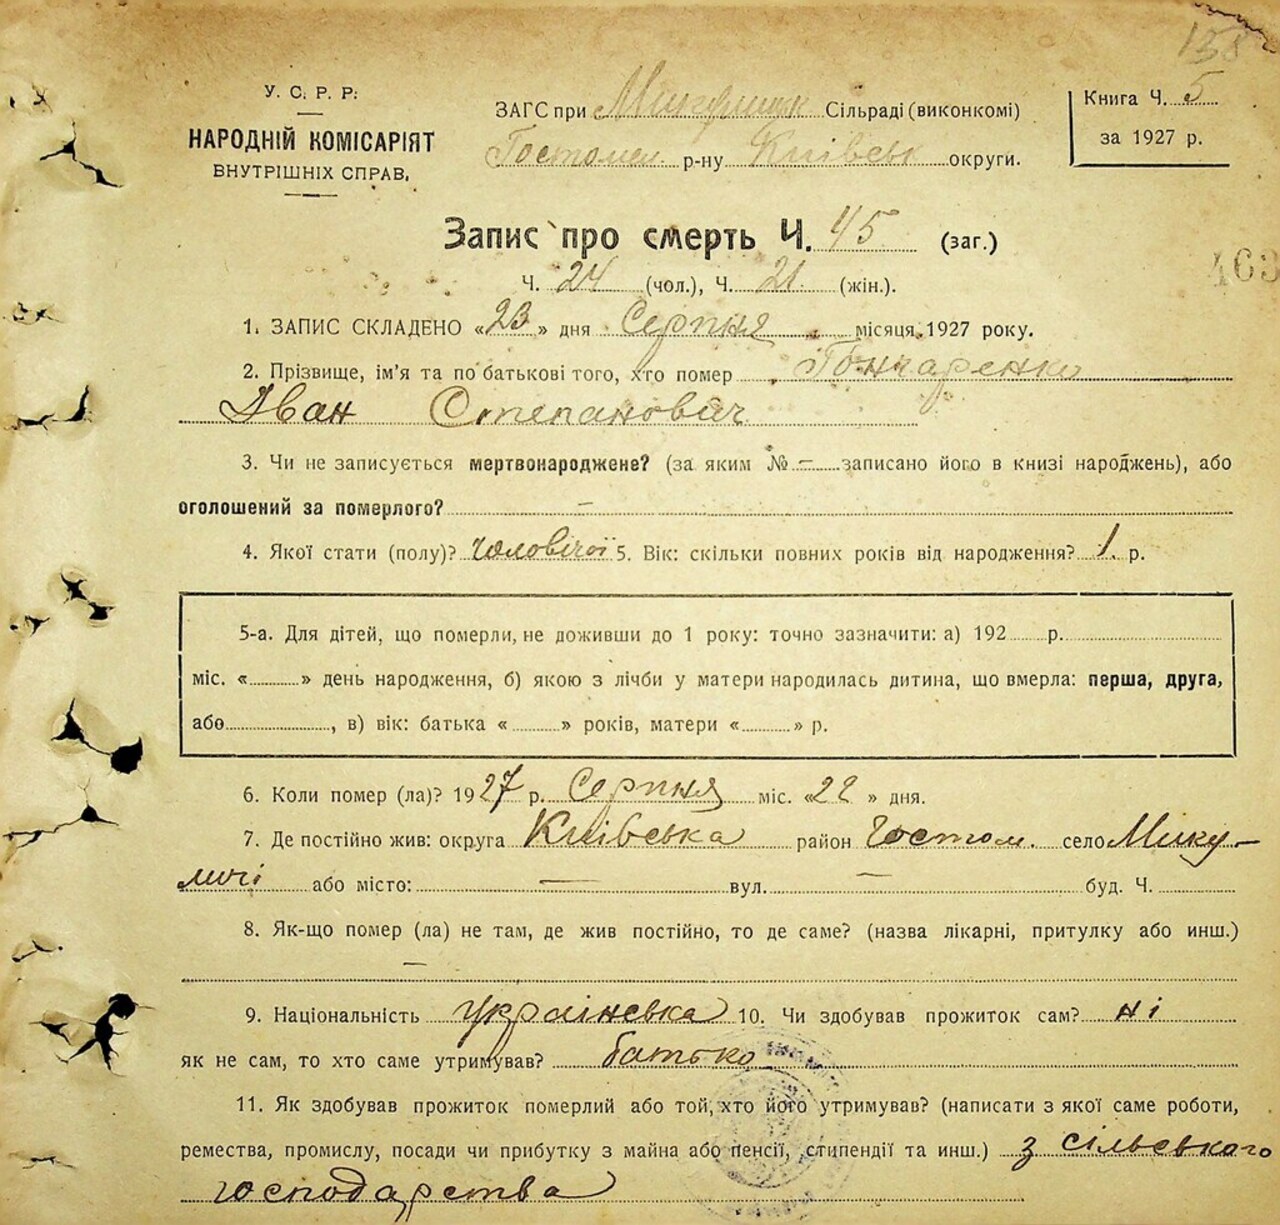 138
У. С. Р. Р.
НАРОДНІЙ КОМІСАРІЯТ
ВНУТРІШНІХ СПРАВ,
ЗАГС при Сільраді (виконкомі)
Гостомел. р-ну Київськ округи.
Книга Ч. 5
за 1927 р.
Запис про смерть Ч. 45 (заг.)
163
Ч. 24 (чол.), Ч. 21. (жін.).
1. ЗАПИС СКЛАДЕНО «23» дня Серпня місяця 1927 року.
2. Прізвище, ім'я та по батькові того, хто помер Гончаренко
Іван Степанович
3. Чи не записується мертвонароджене? (за яким № — записано його в книзі народжень), або
оголошений за померлого? —
4. Якої стати (полу)? чоловічої 5. Вік: скільки повних років від народження? 1. р.
5-а. Для дітей, що померли, не доживши до 1 року: точно зазначити: а) 192 р.
міс. « » день народження, б) якою з лічби у матери народилась дитина, що вмерла: перша, друга,
або , в) вік: батька « » років, матери « » р.
6. Коли помер (ла)? 1927 р. Серпня міс. «22» дня.
7. Де постійно жив: округа Київська район Гостом. село Мику-
личі або місто: — вул. — буд. Ч.
8. Як-що помер (ла) не там, де жив постійно, то де саме? (назва лікарні, притулку або инш.)
—
9. Національність українська 10. Чи здобував прожиток сам? ні
як не сам, то хто саме утримував? батько
11. Як здобував прожиток померлий або той, хто його утримував? (написати з якої саме роботи,
ремества, промислу, посади чи прибутку з майна або пенсії, стипендії та инш.) з сільського
господарства